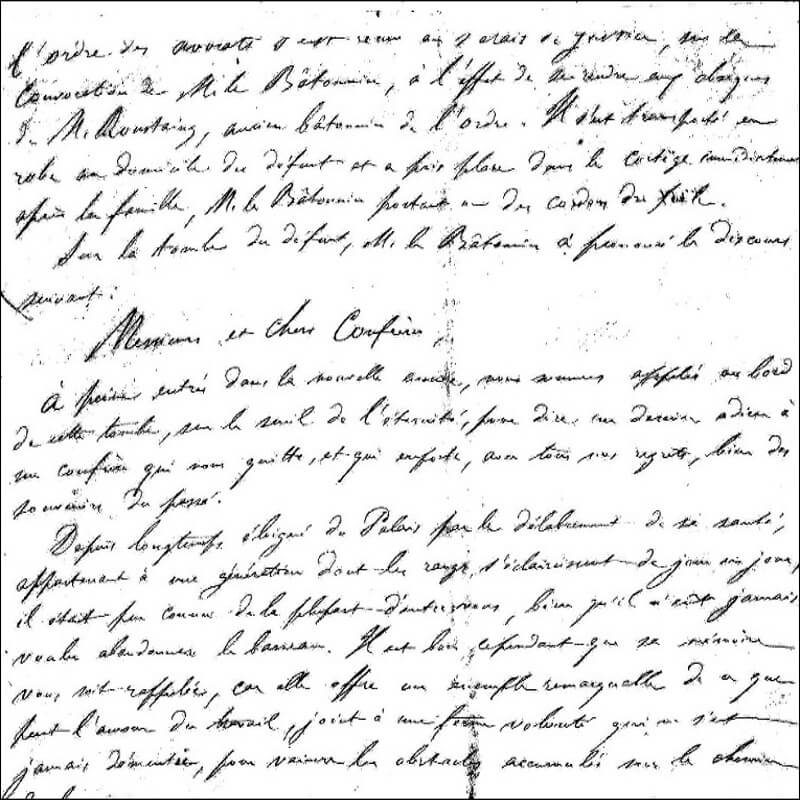 L'ordre des avocats s'est réuni au Palais de justice, sur la
Convocation de M. le Bâtonnier, à l'effet de se rendre aux obsèques
de M. Roustaing, ancien bâtonnier de l'ordre. Il s'est transporté en
robe au domicile du défunt et a pris place dans le cortège immédiatement
après la famille, M. le Bâtonnier portant un des cordons du poële.
Sur la tombe du défunt, M. le Bâtonnier a prononcé le discours
suivant :
Messieurs et chers Confrères,
À peine entrés dans la nouvelle année, nous sommes appelés au bord
de cette tombe, sur le seuil de l'éternité, pour dire un dernier adieu à
un confrère qui nous quitte, et qui emporte, avec tous nos regrets, bien des
souvenirs du passé.
Depuis longtemps éloigné du Palais par le délabrement de sa santé,
appartenant à une génération dont les rangs s'éclaircissent de jour en jour,
il était peu connu de la plupart d'entre vous, bien qu'il n'eût jamais
voulu abandonner le barreau. Il est bon cependant que sa mémoire
vous soit rappelée, car elle offre un exemple remarquable de ce que
peut l'amour du travail, joint à une ferme volonté qui ne s'est
jamais démentie, pour vaincre les obstacles accumulés sur le chemin